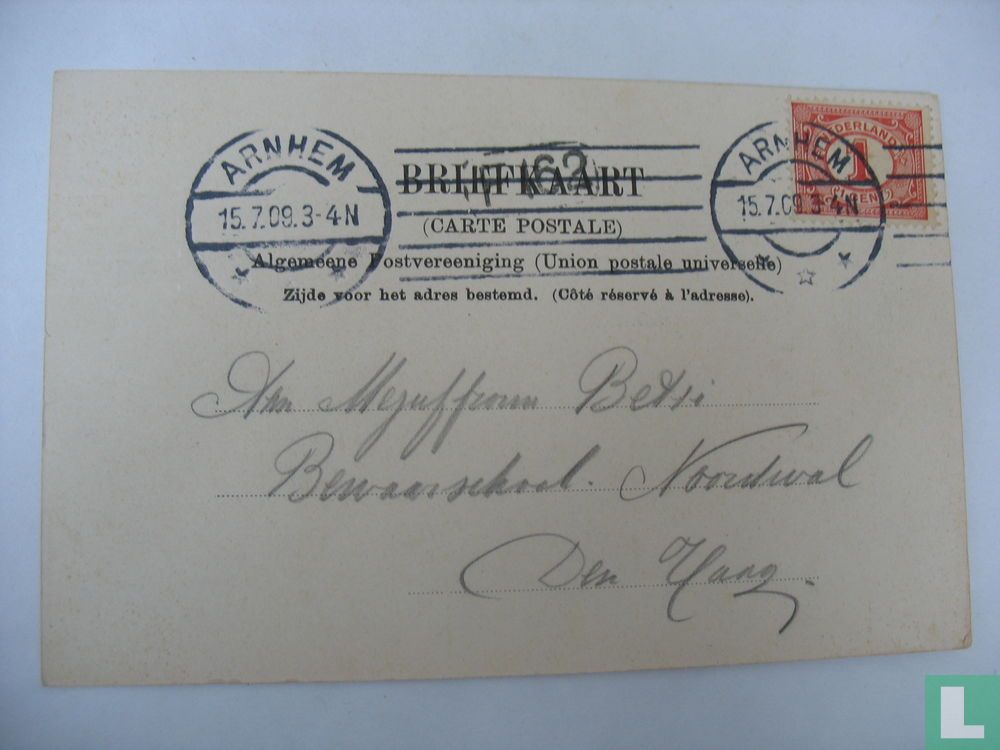 ARNHEM
15.7.09.3-4N
ARNHEM
15.7.09.3-4N
NEDERLAND
1
CENT
BRIEFKAART
(CARTE POSTALE)
Algemeene Postvereeniging (Union postale universelle)
Zijde voor het adres bestemd. (Côté réservé à l'adresse).
Aan Mejuffrouw Betsi
Bewaarschool. Noordwal
Den Haag.
L